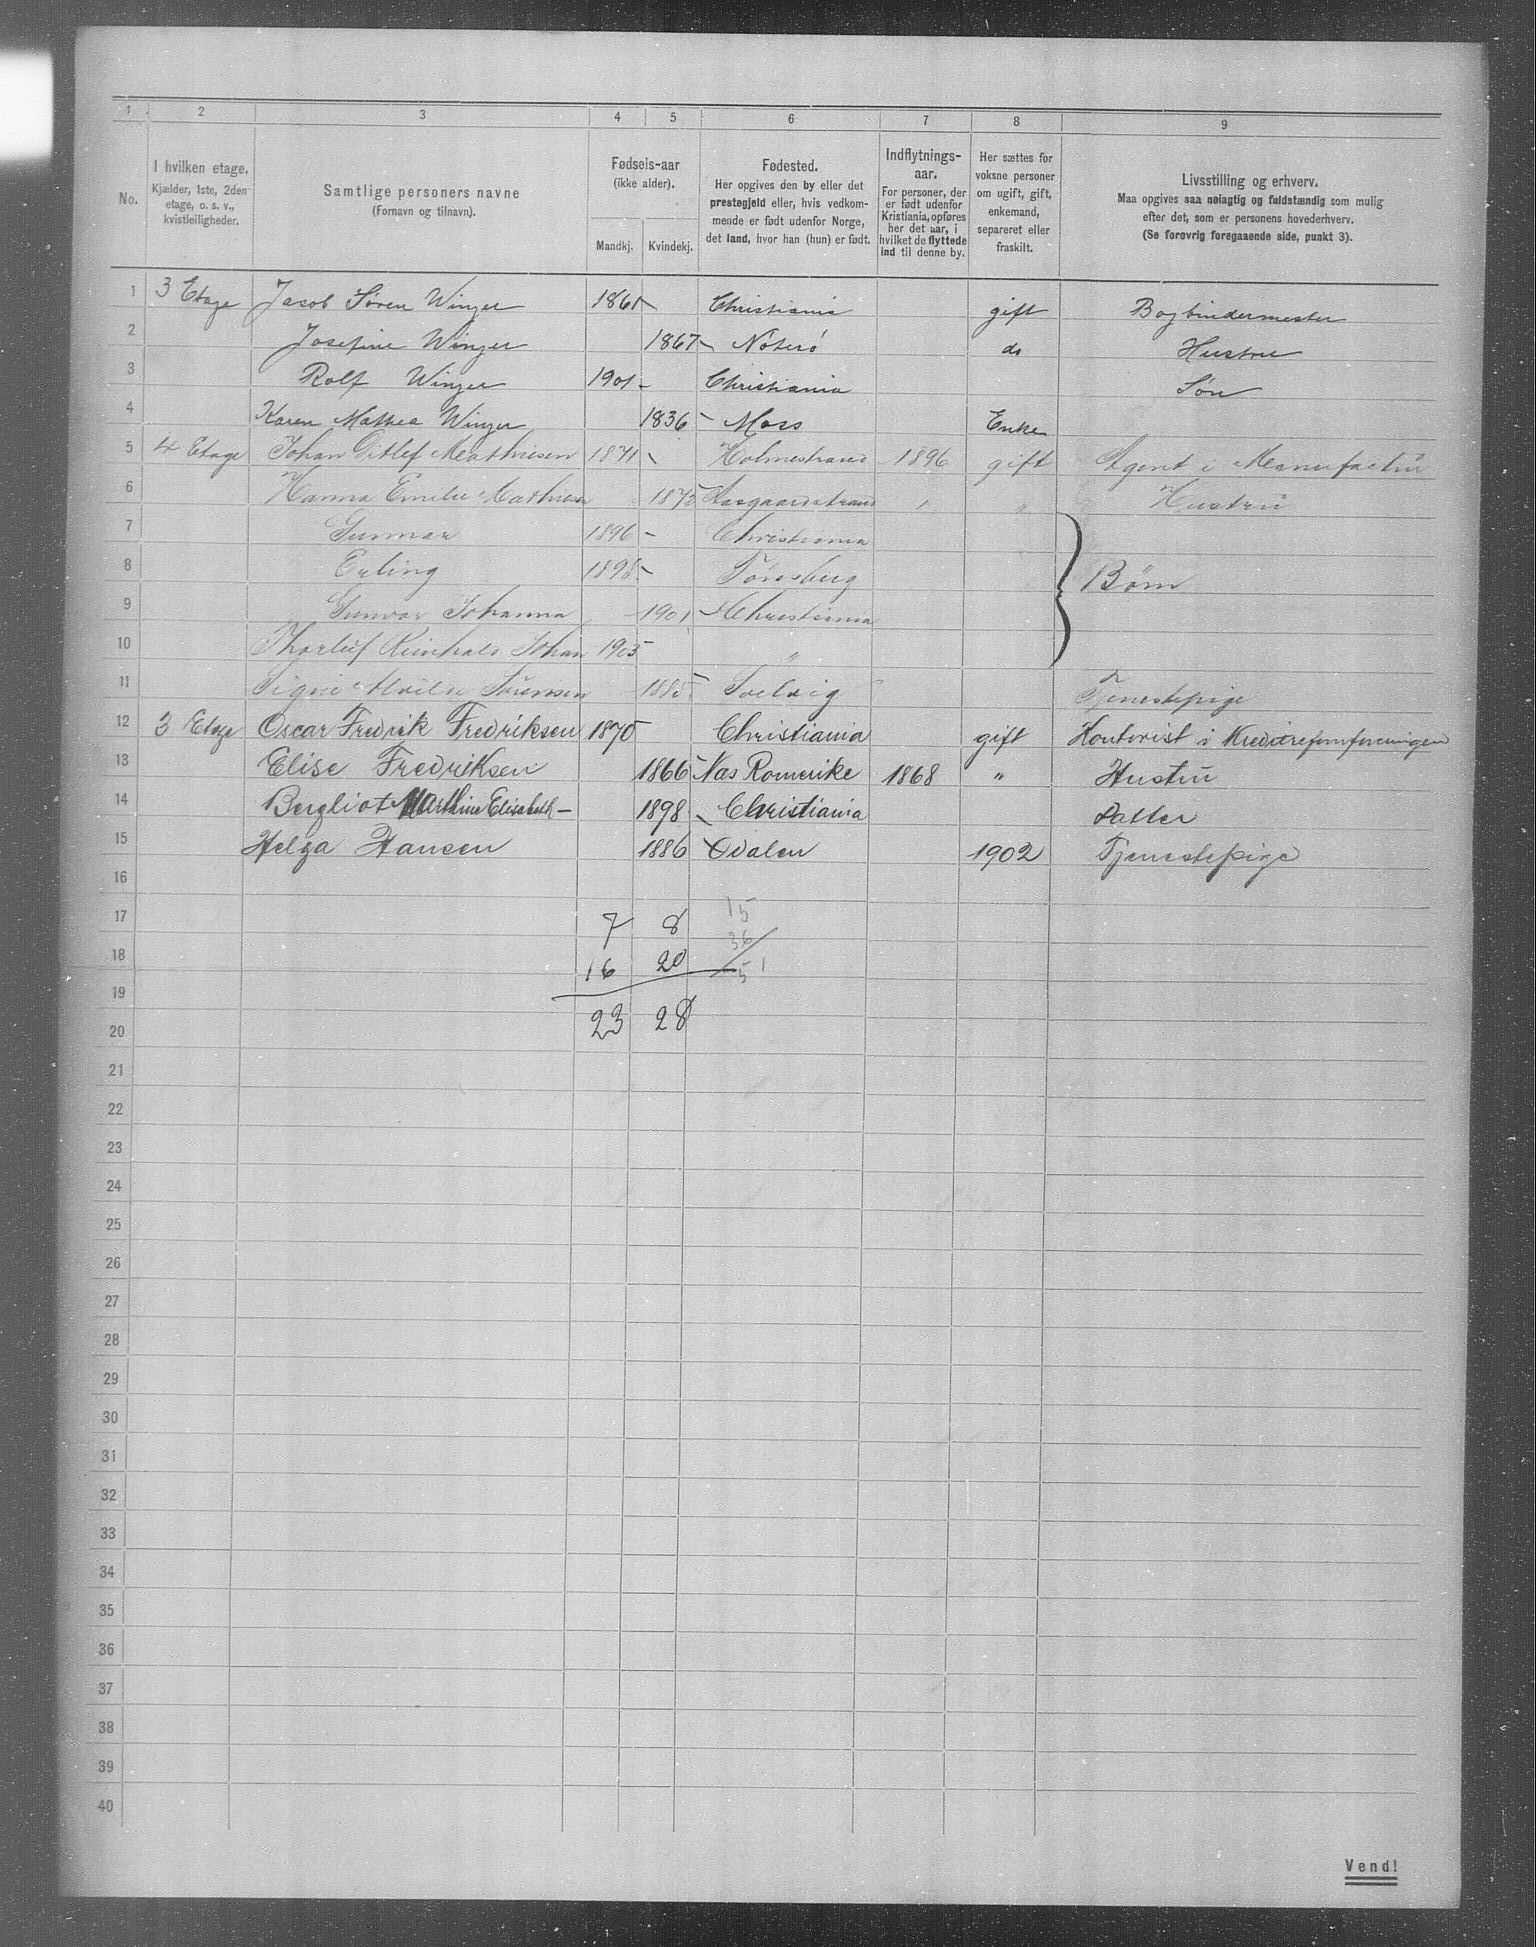 1 2 3 4 5 6 7 8 9
No.
I hvilken etage.
Kjælder, 1ste, 2den etage, o. s. v., kvistleiligheder.
Samtlige personers navne
(Fornavn og tilnavn).
Fødsels-aar
(ikke alder).
Mandkj. Kvindekj.
Fødested.
Her opgives den by eller det
prestegjeld eller, hvis vedkom-
mende er født udenfor Norge,
det land, hvor han (hun) er født.
Indflytnings-
aar.
For personer, der
er født udenfor
Kristiania, opføres
her det aar, i
hvilket de flyttede
ind til denne by.
Her sættes for
voksne personer
om ugift, gift,
enkemand,
separeret eller
fraskilt.
Livsstilling og erhverv.
Maa opgives saa nøiagtig og fuldstændig som mulig
efter det, som er personens hovederhverv.
(Se forøvrig foregaaende side, punkt 3).
1 3 Etage Jacob Søren Winger 1861 Christiania gift Bogbindermester
2 Josefine Winger 1867 Nøterø do Hustru
3 Rolf Winger 1901 Christiania Søn
4 Karen Mathea Winger 1836 Moss Enke
5 4 Etage Johan Ditlef Mathiesen 1871 Holmestrand 1896 gift Agent i Manufactur
6 Hanna Emilie Mathiesen Aasgaardstrand " Hustru
7 Gunnar 1896 Christiania
8 Erling 1898 Tønsberg Børn
9 Gunvor Johanna 1901 Christiania
10 Thorleif Reinhald Johan 1905 "
11 Signe Sørensen 1885 Selvig Tjenestepige
12 3 Etage Oscar Fredrik Fredriksen 1870 Christiania gift Kontorist i Kreditreformforeningen
13 Elise Fredriksen 1866 Nas Romerike 1868 " Hustru
14 Bergliot Marthine Elisabeth — 1898 Christiania Datter
15 Helga Hansen 1886 Odalen 1902 Tjenestepige
16
17 7 8 15
18 16 20 36
19 51
20 23 28
21
22
23
24
25
26
27
28
29
30
31
32
33
34
35
36
37
38
39
40
Vend!